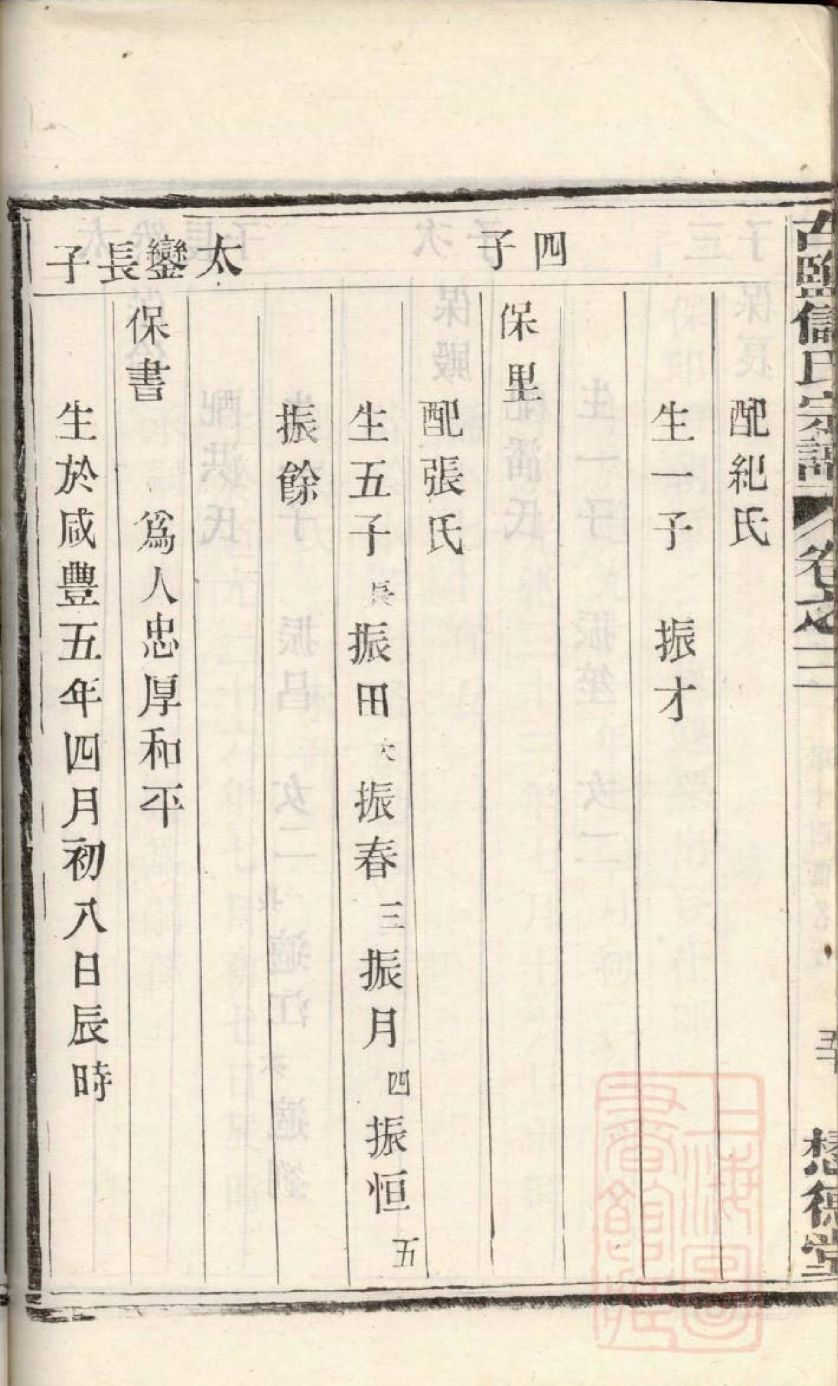 古鹽儲氏宗譜 卷之三 五十 懋德堂
配紀氏
生一子 振才
四子
保里
配張氏
生五子 長 振田 次 振春 三 振月 四 振恒 五
振餘
太鑾長子
保書 爲人忠厚和平
生於咸豐五年四月初八日辰時
上海圖書館藏